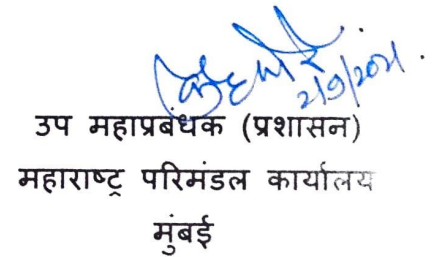 2/9/2021.
उप महाप्रबंधक (प्रशासन)
महाराष्ट्र परिमंडल कार्यालय
मुंबई